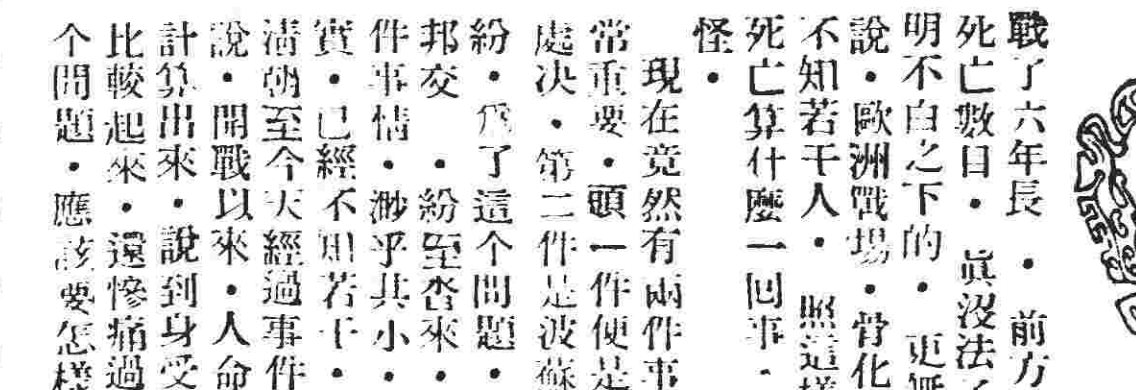 戰了六年長・前方
死亡數目・眞沒法
明不白之下的・更
說・歐洲戰場・骨化
不知若干人・照這樣
死亡算什麼一回事・
怪・
現在竟然有兩件事
常重要・頭一件便是
處决・第二件是波蘇
紛・爲了這个問題・
邦交・紛至沓來・
件事情・渺乎其小・
實・已經不知若干・
淸朝至今天經過事件
說・開戰以來・人命
計算出來・說到身受
比較起來・還慘痛過
个問題・應該要怎樣